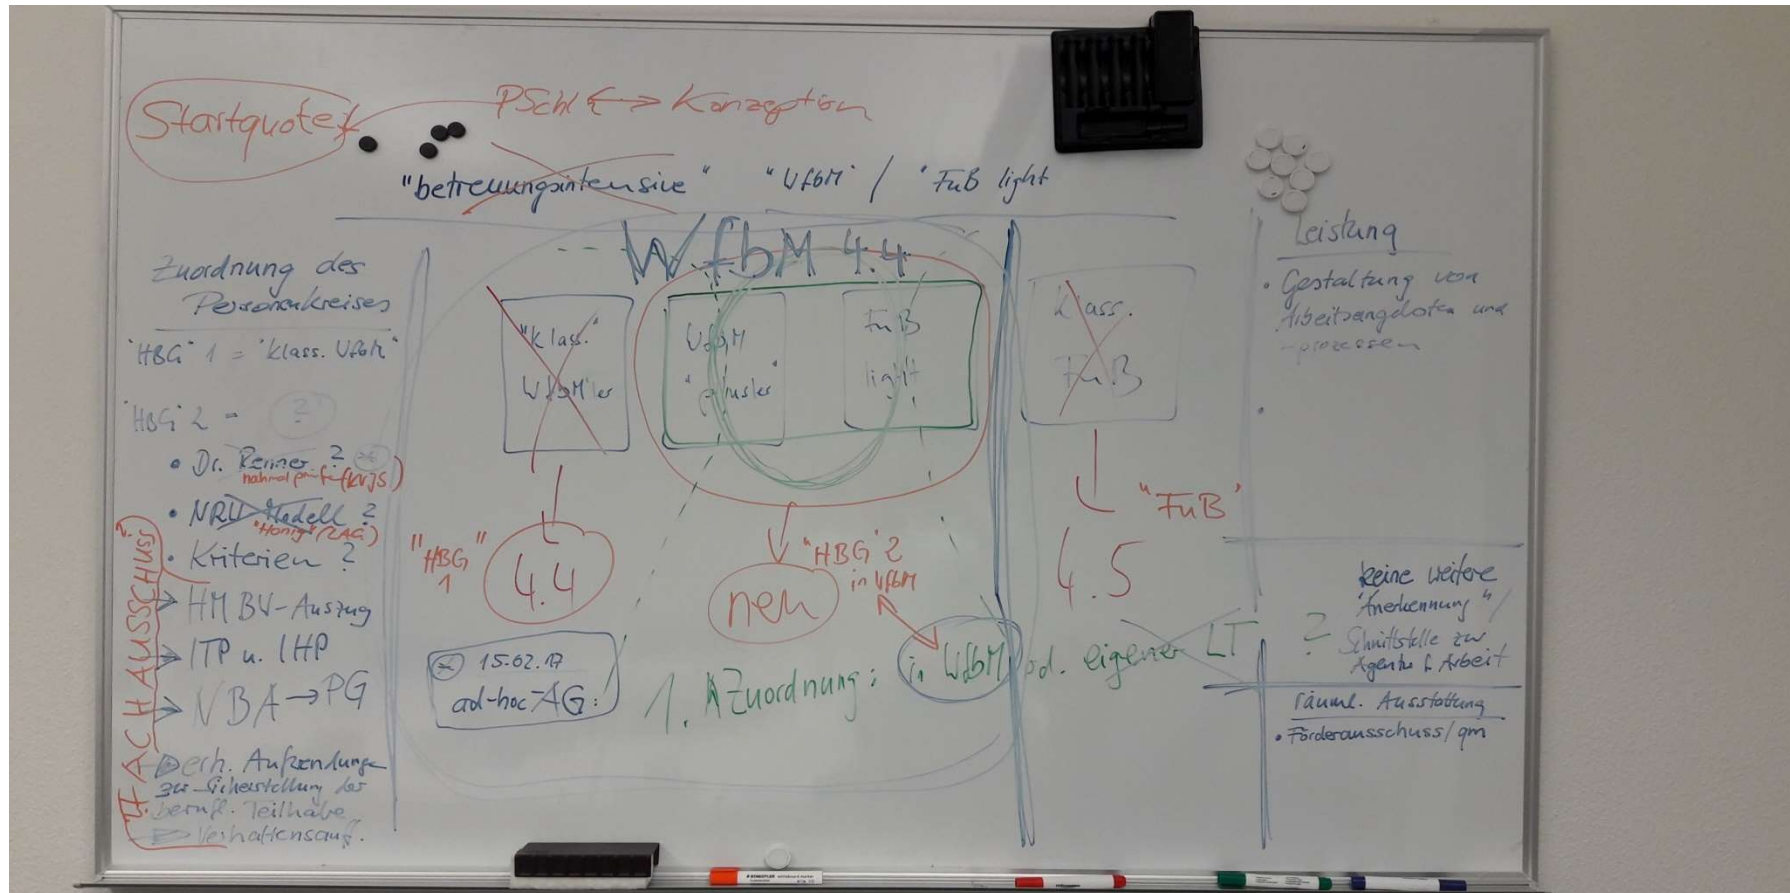 Startquote
PSchl <-> Konzeption
"betreuungsintensive" "WfbM" / "FuB light
WfbM 4.4
Zuordnung des
Personenkreises
"HBG" 1 = "Klass. WfbM"
"HBG" 2 =
?
• Dr. Renner ?
nochmal prüfen (KVJS)
• NRW Modell ?
"Honig" (LAG)
• Kriterien ?
HMBW-Auszug
ITP u. IHP
VBA → PG
erh. Aufwendungen
zur Sicherstellung der
berufl. Teilhabe
Verhaltensauf.
FACHAUSSCHUSS
"Klass."
WfbM'ler
WfbM
FuB
light
Klass.
FuB
"HBG"
1
4.4
"HBG" 2
in WfbM
neu
"FuB"
4.5
15.02.17
ad-hoc-AG:
1. Zuordnung: in WfbM od. eigener LT
Leistung
• Gestaltung von
Arbeitsangeboten und
-prozessen
•
?
keine weitere
"Anerkennung" /
Schnittstelle zur
Agentur f. Arbeit
räuml. Ausstattung
• Förderausschuss/qm
STAEDTLER